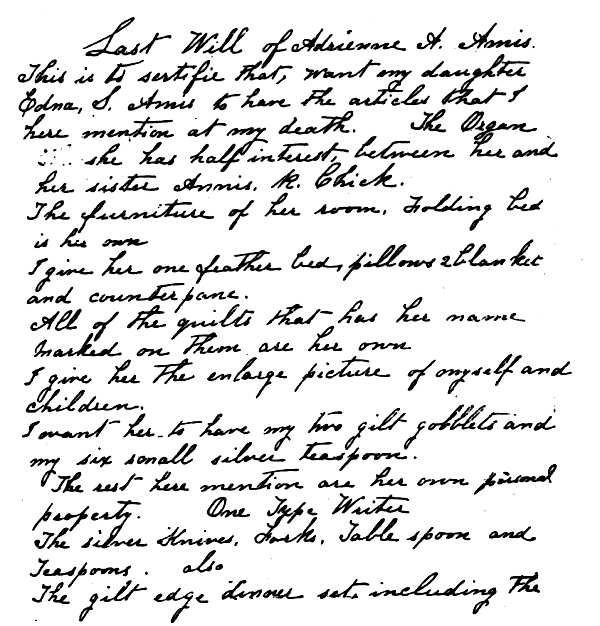 Last Will of Adrienne A. Amis.
This is to sertifie that, want my daughter
Edna, S. Amis to have the articles that I
here mention at my death. The Organ
she has half interest, between her and
her sister Annis. R. Chick.
The furniture of her room, Folding bed
is her own
I give her one feather bed, pillows 2 blanket
and counterpane.
All of the quilts that has her name
marked on them are her own
I give her the enlarge picture of myself and
children.
I want her to have my two gilt gobblets and
my six small silver teaspoon.
The rest here mention are her own personal
property. One Type Writer
The silver Knives, Forks, Table spoon and
Teaspoons. also
The gilt edge dinner set, including the